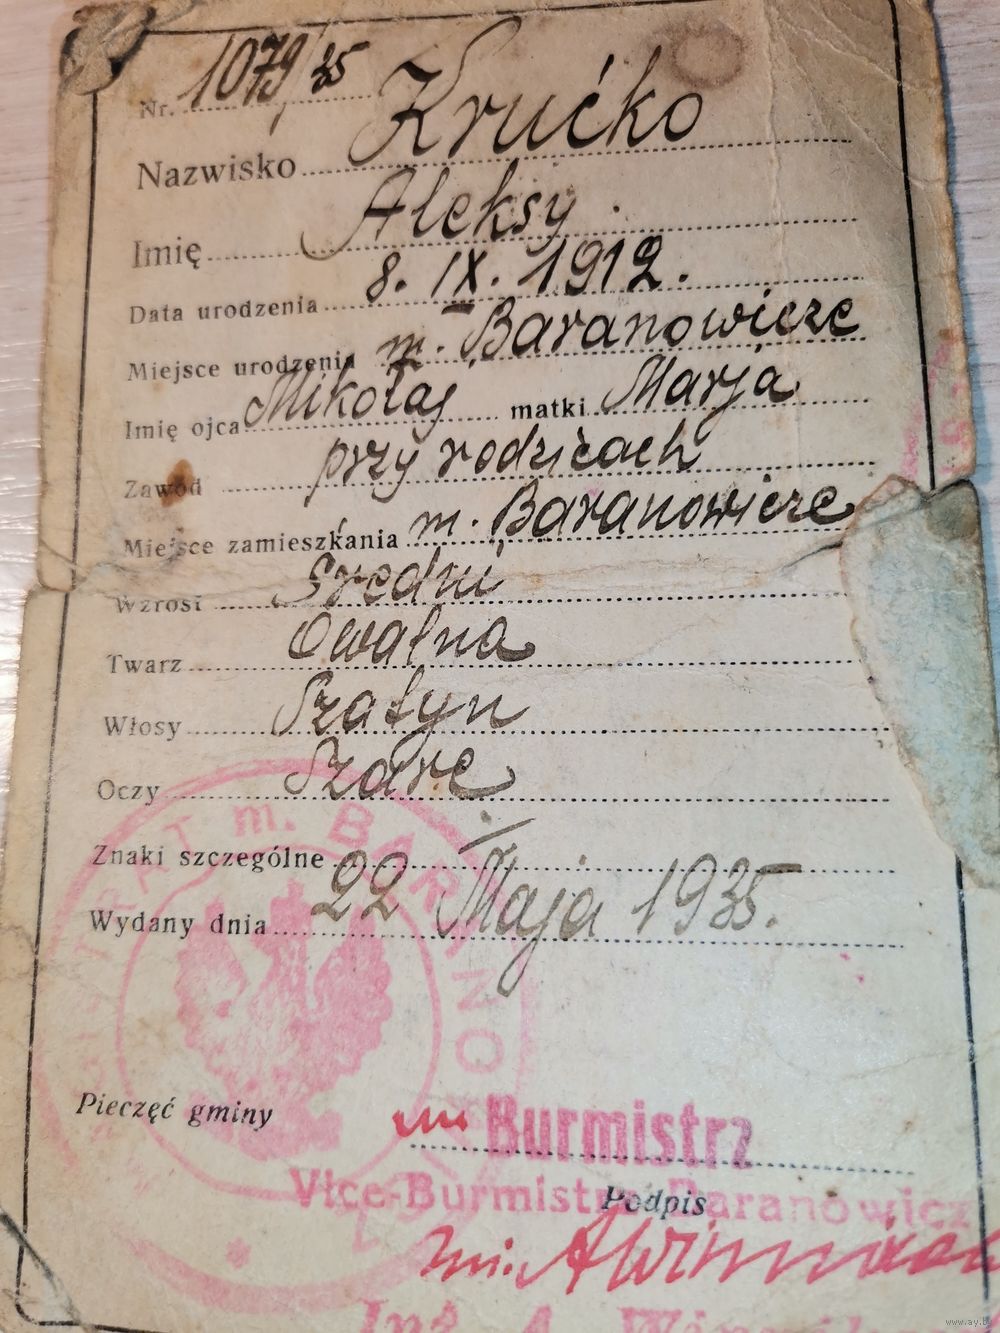 Nr. 1079/35
Nazwisko Krućko
Imię Aleksy.
Data urodzenia 8. IX. 1912.
Miejsce urodzenia m. Baranowicze
Imię ojca Mikołaj matki Marja
Zawód przy rodzicach
Miejsce zamieszkania m. Baranowicze
Wzrost Średni
Twarz Owalna
Włosy Szatyn
Oczy Szare
Znaki szczególne
Wydany dnia 22 Maja 1935.
m. BARANO
Pieczęć gminy
Burmistrz
Vice-Burmistrz Baranowicz
Podpis
Inż. A.
www.ay.by